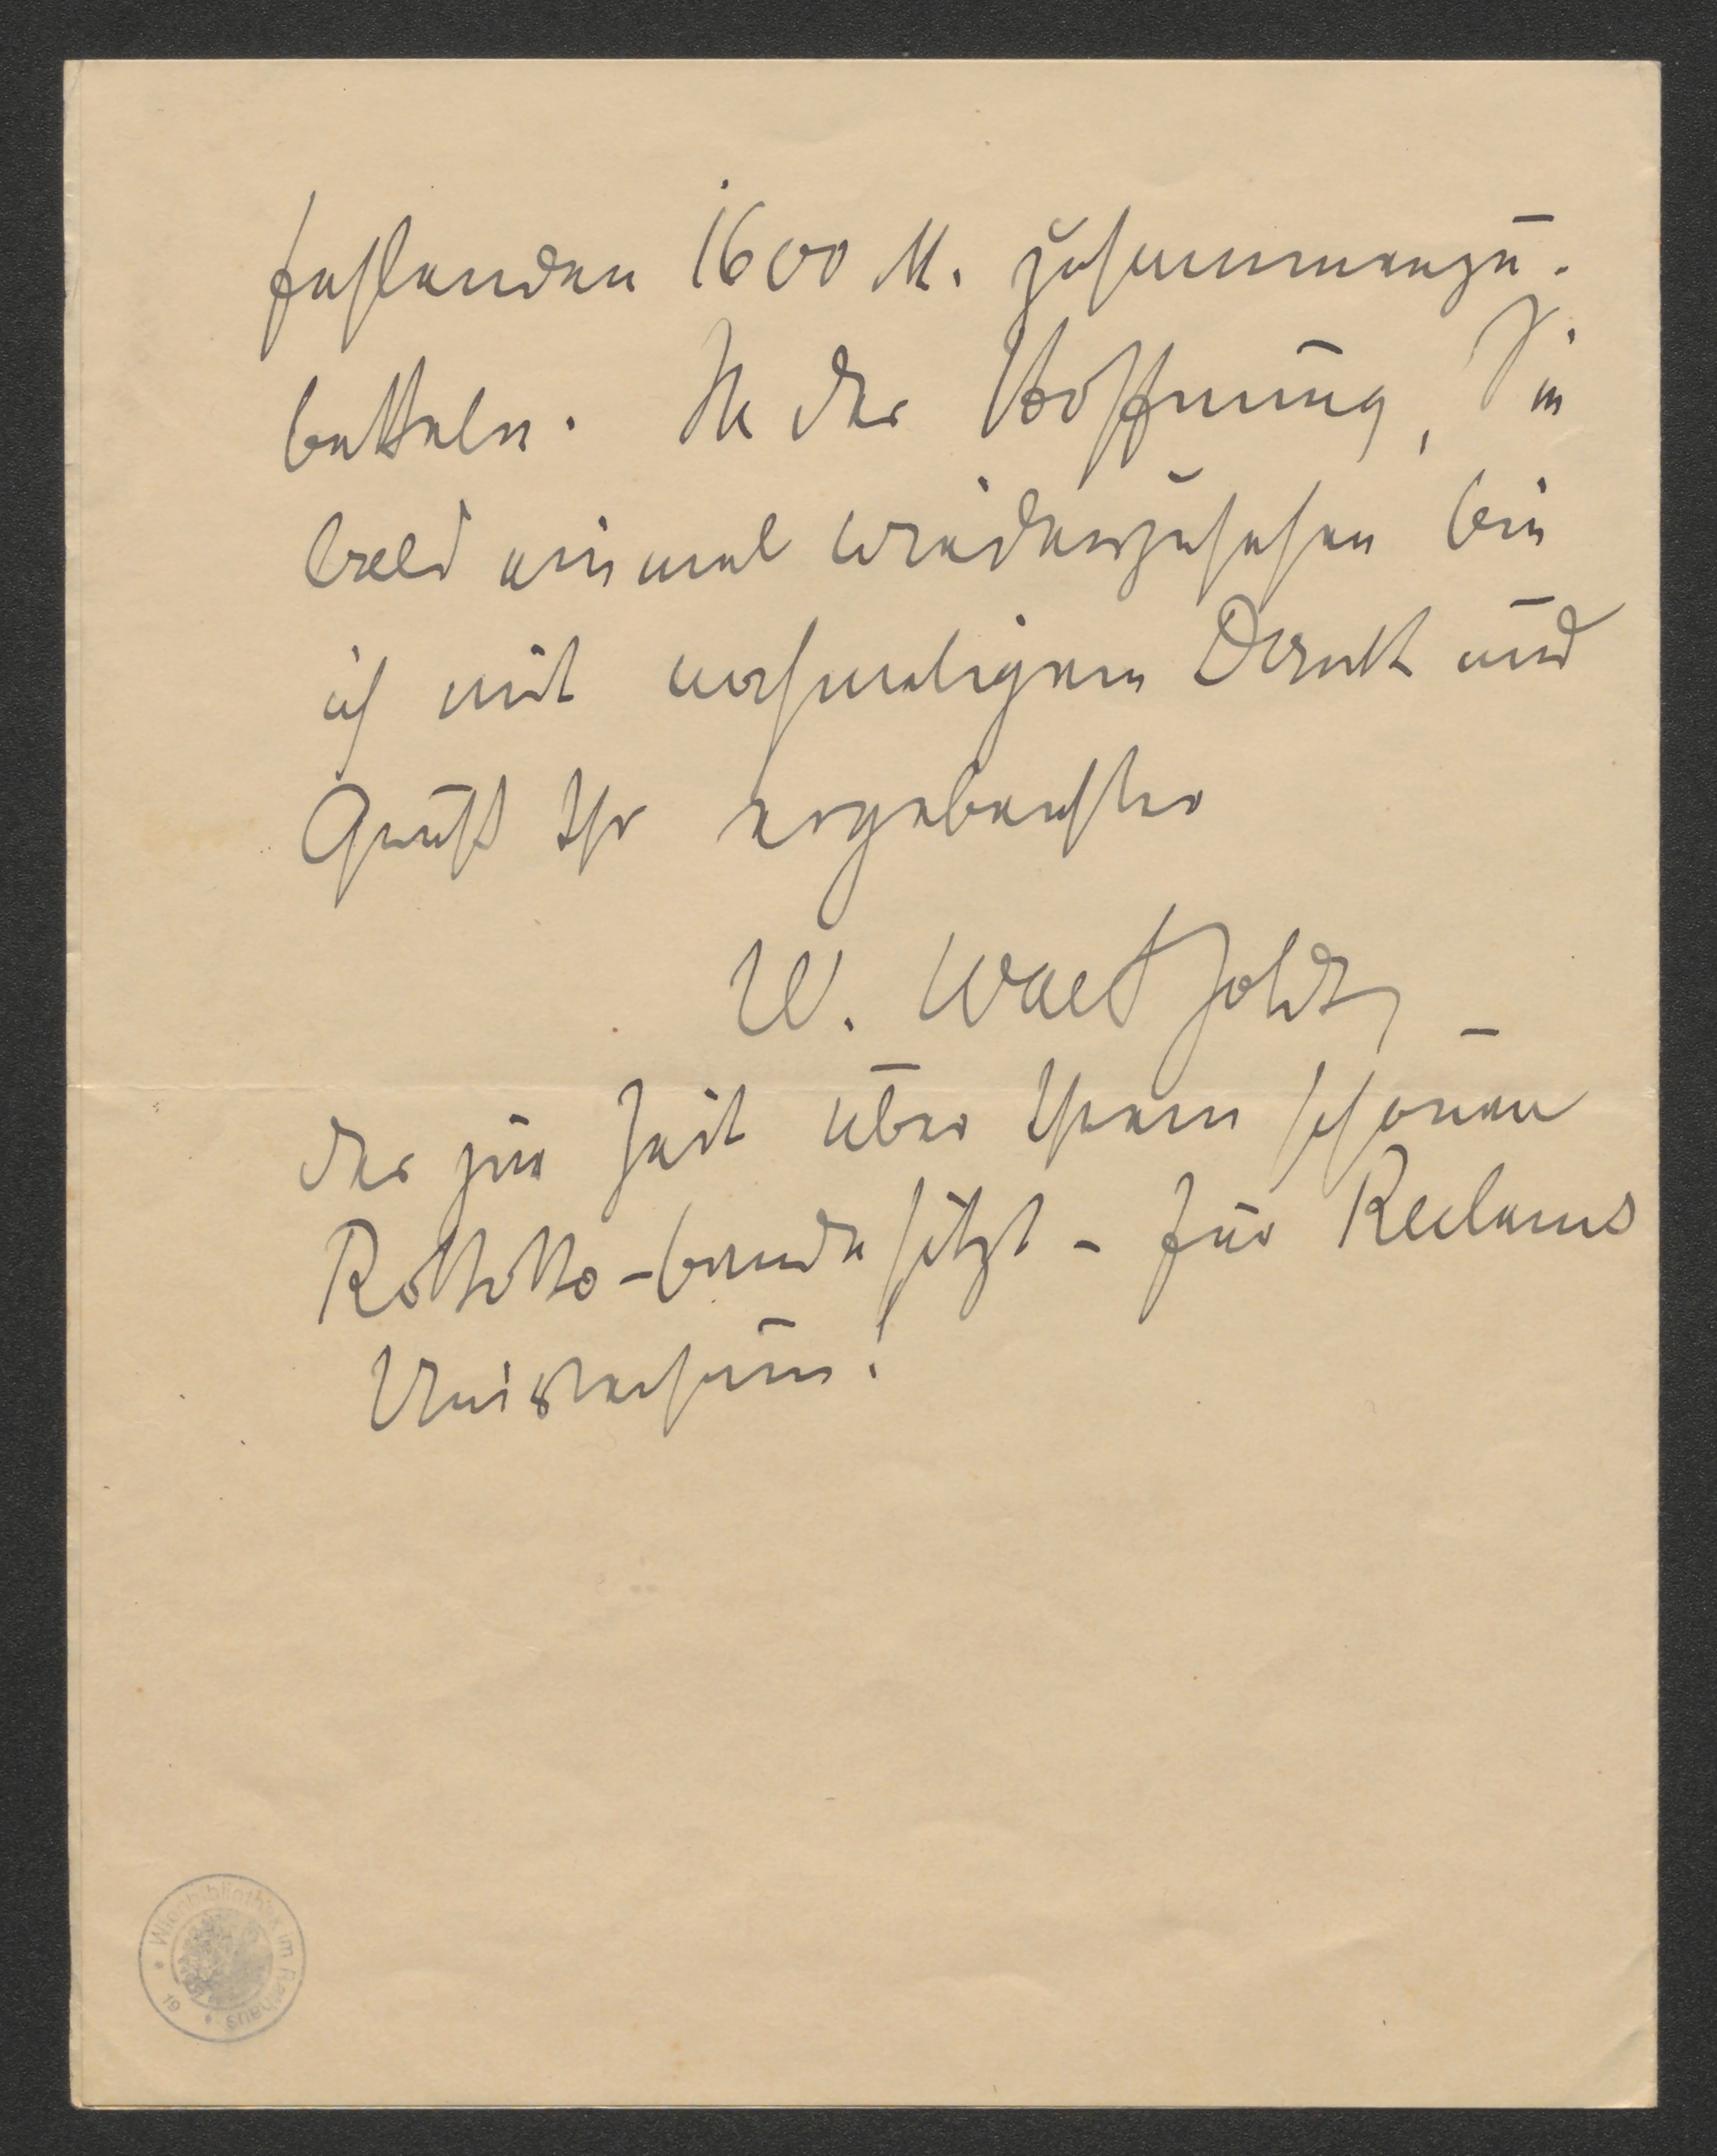 fehlenden 1600 M. zusammenzu-
betteln. In der Hoffnung, Sie
bald einmal wiederzusehen bin
ich mit nochmaligem Dank und
Gruß Ihr ergebenster
W. Waetzoldt,
der zur Zeit über Ihrem schönen
sitzt - für Reclams
Universum!
Wienbibliothek im Rathaus
19